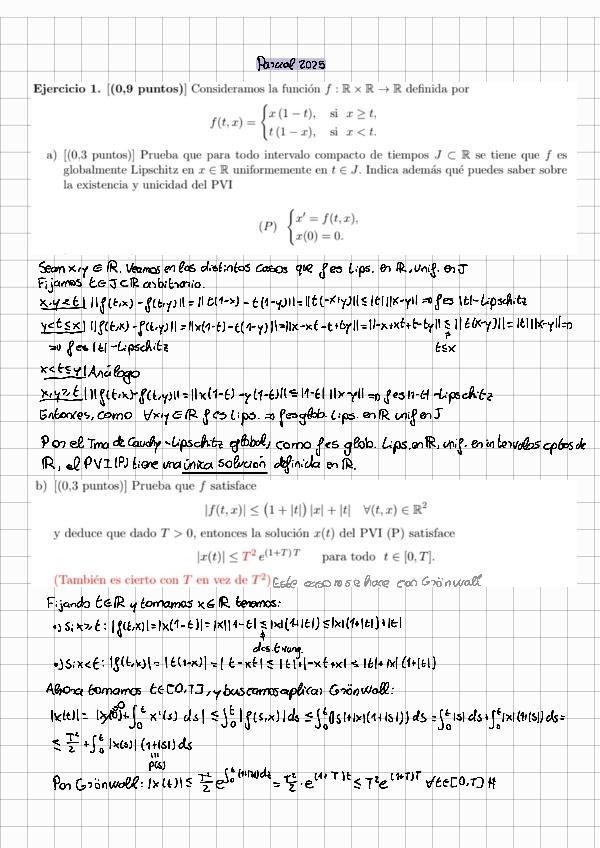 Parcial 2025
Ejercicio 1. [(0,9 puntos)] Consideramos la función f : ℝ × ℝ → ℝ definida por
f(t, x) = { x (1 − t), si x ≥ t,
t (1 − x), si x < t.
a) [(0,3 puntos)] Prueba que para todo intervalo compacto de tiempos J ⊂ ℝ se tiene que f es
globalmente Lipschitz en x ∈ ℝ uniformemente en t ∈ J. Indica además qué puedes saber sobre
la existencia y unicidad del PVI
(P) { x′ = f(t, x),
x(0) = 0.
Sean x,y ∈ ℝ. Veamos en los distintos casos que f es Lips. en ℝ, unif. en J
Fijamos t ∈ J ⊂ ℝ arbitrario.
x,y<t| ||f(t,x) - f(t,y)|| = ||t(1-x) - t(1-y)|| = ||t(-x+y)|| ≤ |t| ||x-y|| ⇒ f es |t|-Lipschitz
y<t≤x| ||f(t,x) - f(t,y)|| = ||x(1-t) - t(1-y)|| = ||x-xt-t+ty|| = ||-x+xt+t-ty|| ≤ ||t(x-y)|| = |t| ||x-y|| ⇒
⇒ f es |t|-Lipschitz t≤x
x<t≤y| Análogo
x,y≥t| ||f(t,x)-f(t,y)|| = ||x(1-t) - y(1-t)|| ≤ |1-t| ||x-y|| ⇒ f es |1-t|-Lipschitz
Entonces, como ∀x,y ∈ ℝ f es Lips. ⇒ f es glob. Lips. en ℝ unif en J
Por el Tma de Cauchy-Lipschitz global, como f es glob. Lips. en ℝ, unif. en intervalos cptos de
ℝ, el PVI (P) tiene una única solución definida en ℝ.
b) [(0,3 puntos)] Prueba que f satisface
|f(t, x)| ≤ (1 + |t|) |x| + |t| ∀(t, x) ∈ ℝ²
y deduce que dado T > 0, entonces la solución x(t) del PVI (P) satisface
|x(t)| ≤ T² e^{(1+T) T} para todo t ∈ [0, T].
(También es cierto con T en vez de T²) Este caso no se hace con Grönwall
Fijando t∈ℝ y tomamos x∈ℝ tenemos:
•) Si x≥t: |f(t,x)| = |x(1-t)| = |x||1-t| ≤ |x|(1+|t|) ≤ |x|(1+|t|)+|t|
des. triang.
•) Si x<t: |f(t,x)| = |t(1-x)| = |t-xt| ≤ |t|+|-xt+x| ≤ |t|+|x|(1+|t|)
Ahora tomamos t∈[0,T], y buscamos aplicar Grönwall:
|x(t)| = |x(0)+∫₀ᵗ x'(s) ds| ≤ ∫₀ᵗ |f(s,x)| ds ≤ ∫₀ᵗ (|s|+|x|(1+|s|)) ds = ∫₀ᵗ |s| ds + ∫₀ᵗ |x|(1+|s|) ds =
≤ T²/2 + ∫₀ᵗ |x(s)| (1+|s|) ds
p(s)
Por Grönwall: |x(t)| ≤ T²/2 e^{∫₀ᵗ (1+|s|) ds} = T²/2 · e^{(1+T)t} ≤ T² e^{(1+T)T} ∀t∈[0,T] #